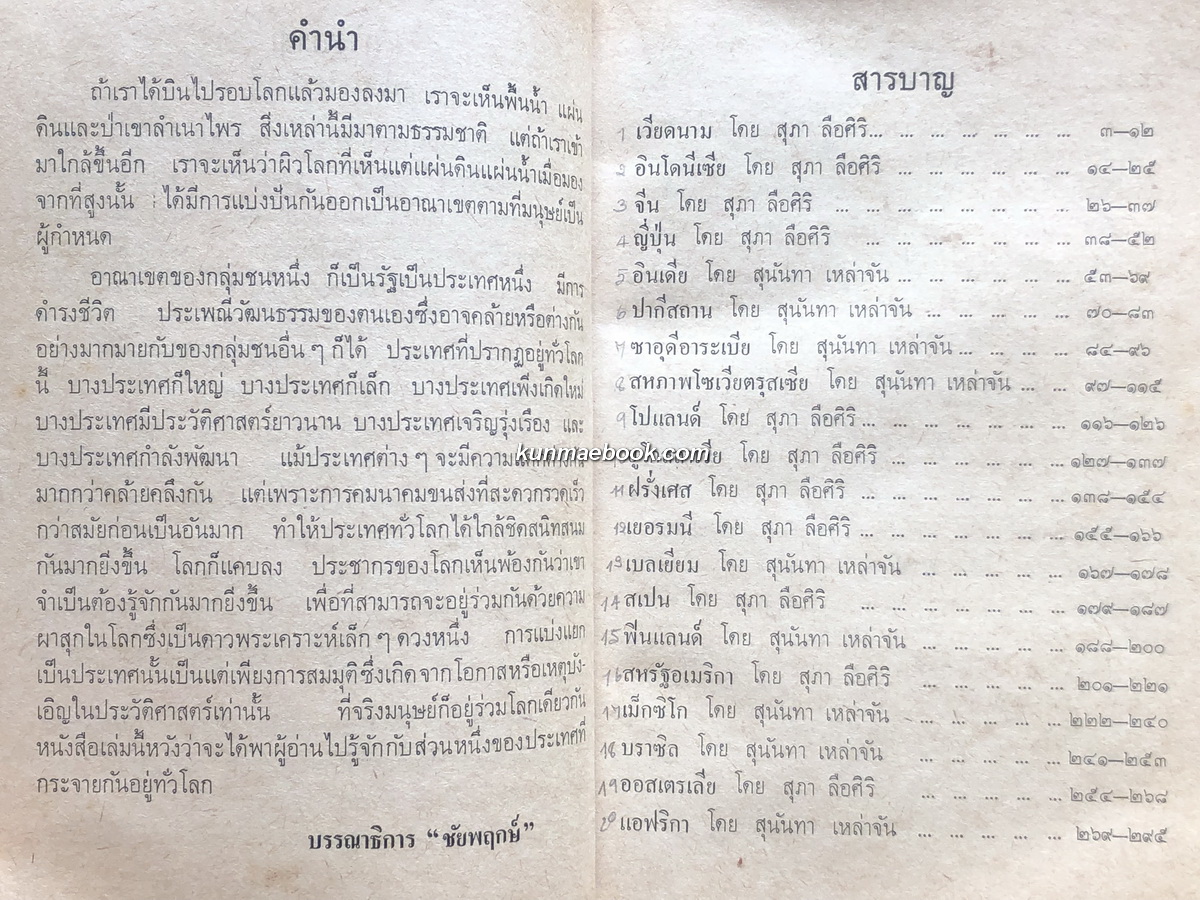 คำนำ
ถ้าเราได้บินไปรอบโลกแล้วมองลงมา เราจะเห็นพื้นน้ำ แผ่น
ดินและป่าเขาลำเนาไพร สิ่งเหล่านี้มีมาตามธรรมชาติ แต่ถ้าเราเข้า
มาใกล้ขึ้นอีก เราจะเห็นว่าผิวโลกที่เห็นแต่แผ่นดินแผ่นน้ำเมื่อมอง
จากที่สูงนั้น ได้มีการแบ่งปันกันออกเป็นอาณาเขตตามที่มนุษย์เป็น
ผู้กำหนด
อาณาเขตของกลุ่มชนหนึ่ง ก็เป็นรัฐเป็นประเทศหนึ่ง มีการ
ดำรงชีวิต ประเพณีวัฒนธรรมของตนเองซึ่งอาจคล้ายหรือต่างกัน
อย่างมากมายกับของกลุ่มชนอื่น ๆ ก็ได้ ประเทศที่ปรากฏอยู่ทั่วโลก
นี้ บางประเทศก็ใหญ่ บางประเทศก็เล็ก บางประเทศเพิ่งเกิดใหม่
บางประเทศมีประวัติศาสตร์ยาวนาน บางประเทศเจริญรุ่งเรือง และ
บางประเทศกำลังพัฒนา แม้ประเทศต่าง ๆ จะมีความแตกต่างกัน
มากกว่าคล้ายคลึงกัน แต่เพราะการคมนาคมขนส่งที่สะดวกรวดเร็ว
กว่าสมัยก่อนเป็นอันมาก ทำให้ประเทศทั่วโลกได้ใกล้ชิดสนิทสนม
กันมากยิ่งขึ้น โลกก็แคบลง ประชากรของโลกเห็นพ้องกันว่าเขา
จำเป็นต้องรู้จักกันมากยิ่งขึ้น เพื่อที่สามารถจะอยู่ร่วมกันด้วยความ
ผาสุกในโลกซึ่งเป็นดาวพระเคราะห์เล็ก ๆ ดวงหนึ่ง การแบ่งแยก
เป็นประเทศนั้นเป็นแต่เพียงการสมมุติซึ่งเกิดจากโอกาสหรือเหตุบัง-
เอิญในประวัติศาสตร์เท่านั้น ที่จริงมนุษย์ก็อยู่ร่วมโลกเดียวกัน
หนังสือเล่มนี้หวังว่าจะได้พาผู้อ่านไปรู้จักกับส่วนหนึ่งของประเทศที่
กระจายกันอยู่ทั่วโลก
บรรณาธิการ “ชัยพฤกษ์”
สารบาญ
1 เวียดนาม โดย สุภา ลือศิริ... ... ... ... ... ... ... ๓—๑๒
2 อินโดนีเซีย โดย สุภา ลือศิริ ... ... ... ... ... ... ๑๔—๒๕
3 จีน โดย สุภา ลือศิริ ... ... ... ... ... ... ... ๒๖—๓๗
4 ญี่ปุ่น โดย สุภา ลือศิริ ... ... ... ... ... ... ๓๘—๕๒
5 อินเดีย โดย สุนันทา เหล่าจัน ... ... ... ... ... ... ๕๓—๖๙
6 ปากีสถาน โดย สุนันทา เหล่าจัน ... ... ... ... ... ๗๐—๘๓
7 ซาอุดีอาระเบีย โดย สุนันทา เหล่าจัน ... ... ... ... ๘๔—๙๖
8 สหภาพโซเวียตรุสเซีย โดย สุนันทา เหล่าจัน ... ... ๙๗—๑๑๕
9 โปแลนด์ โดย สุภา ลือศิริ ... ... ... ... ... ... ... ๑๑๖—๑๒๖
โดย สุภา ลือศิริ ... ... ... ... ... ... ๑๒๗—๑๓๗
11 ฝรั่งเศส โดย สุภา ลือศิริ ... ... ... ... ... ... ๑๓๘—๑๕๔
12 เยอรมนี โดย สุภา ลือศิริ ... ... ... ... ... ... ... ๑๕๕—๑๖๖
13 เบลเยียม โดย สุนันทา เหล่าจัน ... ... ... ... ... ๑๖๗—๑๗๘
14 สเปน โดย สุภา ลือศิริ ... ... ... ... ... ... ๑๗๙—๑๘๗
15 ฟินแลนด์ โดย สุนันทา เหล่าจัน ... ... ... ... ... ๑๘๘—๒๐๐
16 สหรัฐอเมริกา โดย สุภา ลือศิริ ... ... ... ... ... ๒๐๑—๒๒๑
17 เม็กซิโก โดย สุนันทา เหล่าจัน ... ... ... ... ... ๒๒๒—๒๔๐
18 บราซิล โดย สุนันทา เหล่าจัน ... ... ... ... ... ๒๔๑—๒๕๓
19 ออสเตรเลีย โดย สุภา ลือศิริ ... ... ... ... ... ๒๕๔—๒๖๘
20 แอฟริกา โดย สุนันทา เหล่าจัน ... ... ... ... ... ๒๖๙—๒๙๕
kunmaebook.com